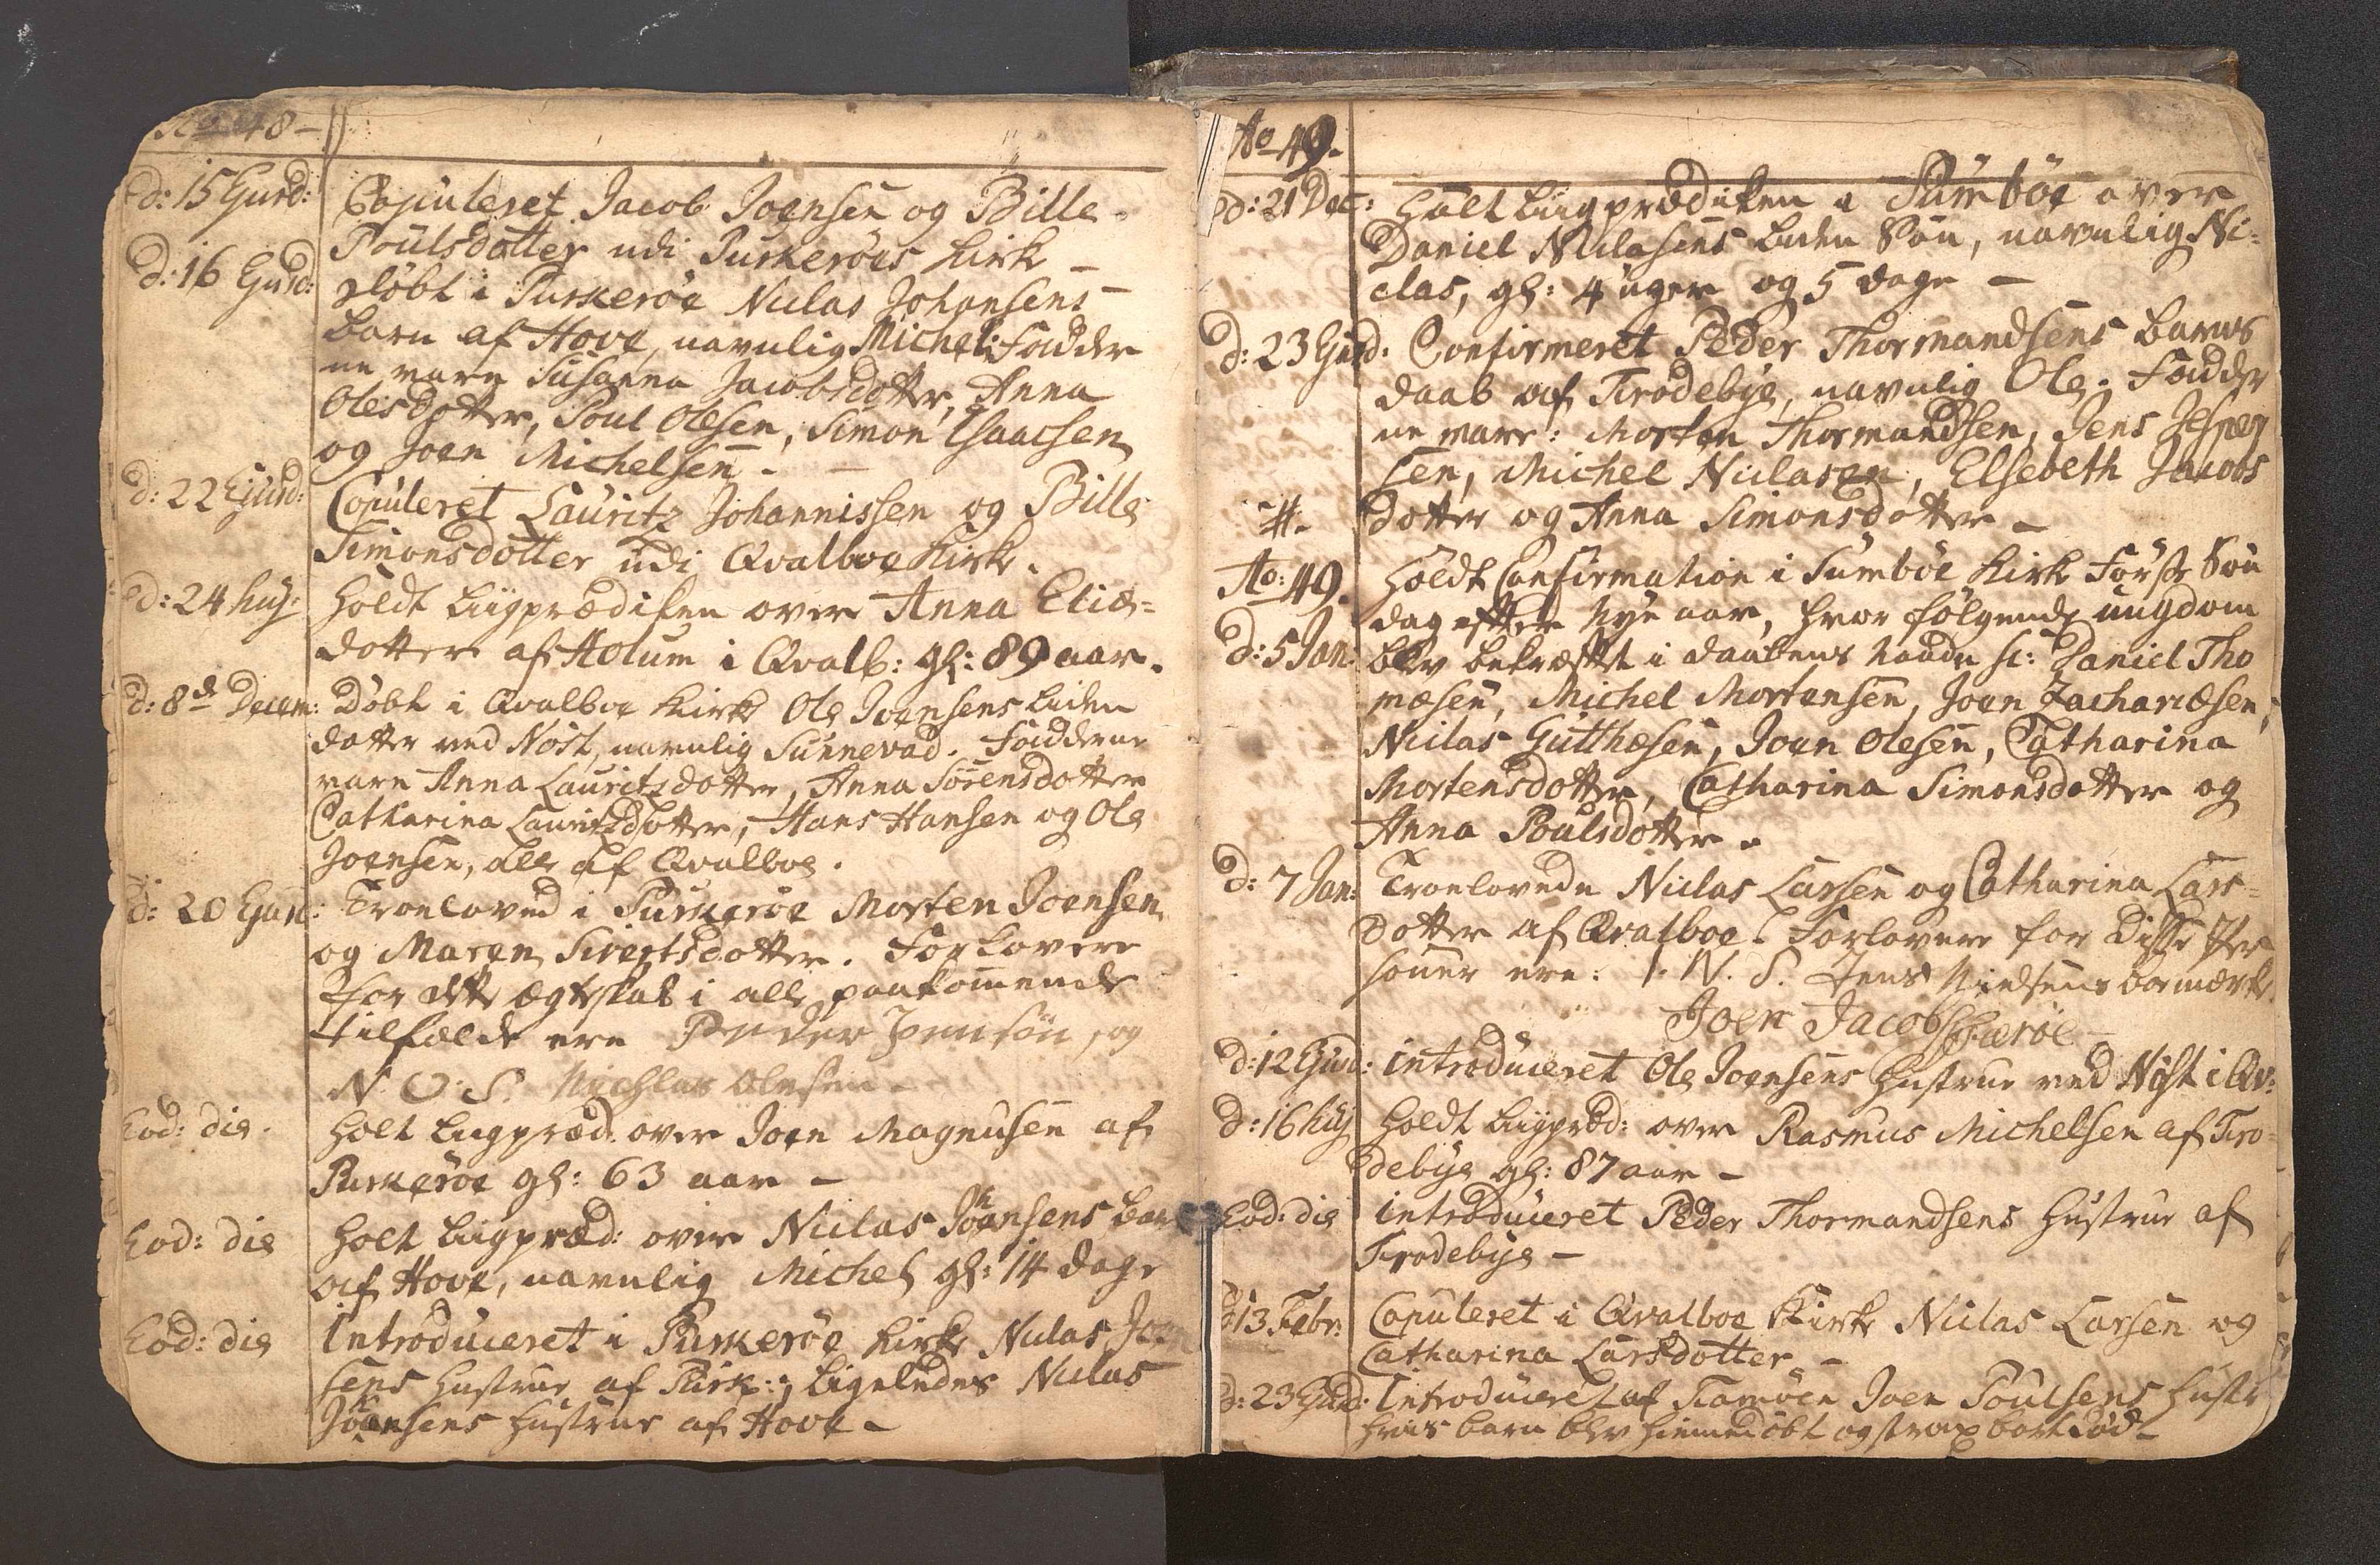 Ao 48 -
d: 15 Ejusd: Copuleret Jacob Joensen og Bille
Poulsdotter udi Purkerøes Kirke
d: 16 Ejusd: døbt i Purkerøe Niclas Johansens
barn af Hove, navnlig Michel. Fadder
ne vare Susanna Jacobsdotter, Anna
Olesdotter, Poul Olesen, Simon Isaacsen
og Joen Michelsen. -
d: 22 Ejusd: Copuleret Lauritz Johannissen og Bille
Simonsdotter udi Qvalboe Kirke.
d: 24 huj: Holdt Liigprædiken over Anna Elias=
dotter af Holum i Qvalb: gl: 89 aar.
d: 8de Decem: Døbt i Qvalboe Kirke Ole Joensens liden
datter ved Nøst, navnlig Sunnevad. Fadderne
vare Anna Lauritzdotter, Anna Sørensdotter
Catharina Lauritzdotter, Hans Hansen og Ole
Joensen, alle af Qvalboe.
d: 20 Ejusd: Troeloved i Purkerøe Morten Joensen
og Maren Sivertsdotter. Forlovere
for dette ægteskab i alle paakommende
tilfælde ere Peder Jensøn, og
N. O. S. Nichlas Olesen -
Eod: die. Holt Liigpræd. over Joen Magnusen af
Purkerøe gl: 63 aar -
Eod: die Holt Liigpræd: over Niclas Johansens bar
af Hove, navnlig Michel gl: 14 dage
Eod: die Introduceret i Purkerøe Kirke Niclas Jo
sens Hustrue af Purk:, ligeledes Niclas
Johansens Hustrue af Hove -
Ao 49.
d: 21 Dec: Holt Liigprædiken i Sumbøe over
Daniel Niclasens liden Søn, navnlig Ni=
clas, gl: 4 uger og 5 dage -
d: 23 Ejusd. Confirmeret Peder Thormandsens barns
daab af Frodebye, navnlig Ole. Fadder
ne vare: Morten Thormandsen, Jens Jesper
sen, Michel Niclasen, Elsebeth Jacobs
#. dotter og Anna Simonsdotter -
Ao: 49. Holdt Confirmation i Sumbøe Kirke Første Søn
dag efter Nye aar, hvor følgende ungdom
d: 5 Jan: blev bekræftet i daabens naade sc: Daniel Tho
mæsen, Michel Mortensen, Joen Zachariæsen,
Niclas Gutthæsen, Joen Olesen, Catharina
Mortensdotter, Catharina Simonsdotter og
Anna Poulsdotter.
d: 7 Jan: Troelovede Niclas Larsen og Catharina Lars=
dotter af Qvalboe. Forlovere for disse Per
soner ere: I. N. S. Jens Nielsens bomærke.
Joen Jacobs Færøe
d: 12 Ejusd: introduceret Ole Joensens Hustrue ved Nøst i Qv:
d: 16 huj Holdt Liigpræd: over Rasmus Michelsen af Fro
debye gl: 87 aar -
Eod: die introduceret Peder Thormandsens Hustrue af
Frodebye -
d: 13 Febr: Copuleret i Qvalboe Kirke Niclas Larsen og
Catharina Larsdotter. -
d: 23 Ejusd: Introduceret af Famøen Joen Poulsens Hustr
hvis barn blev hiemmedøbt og strax bort død -